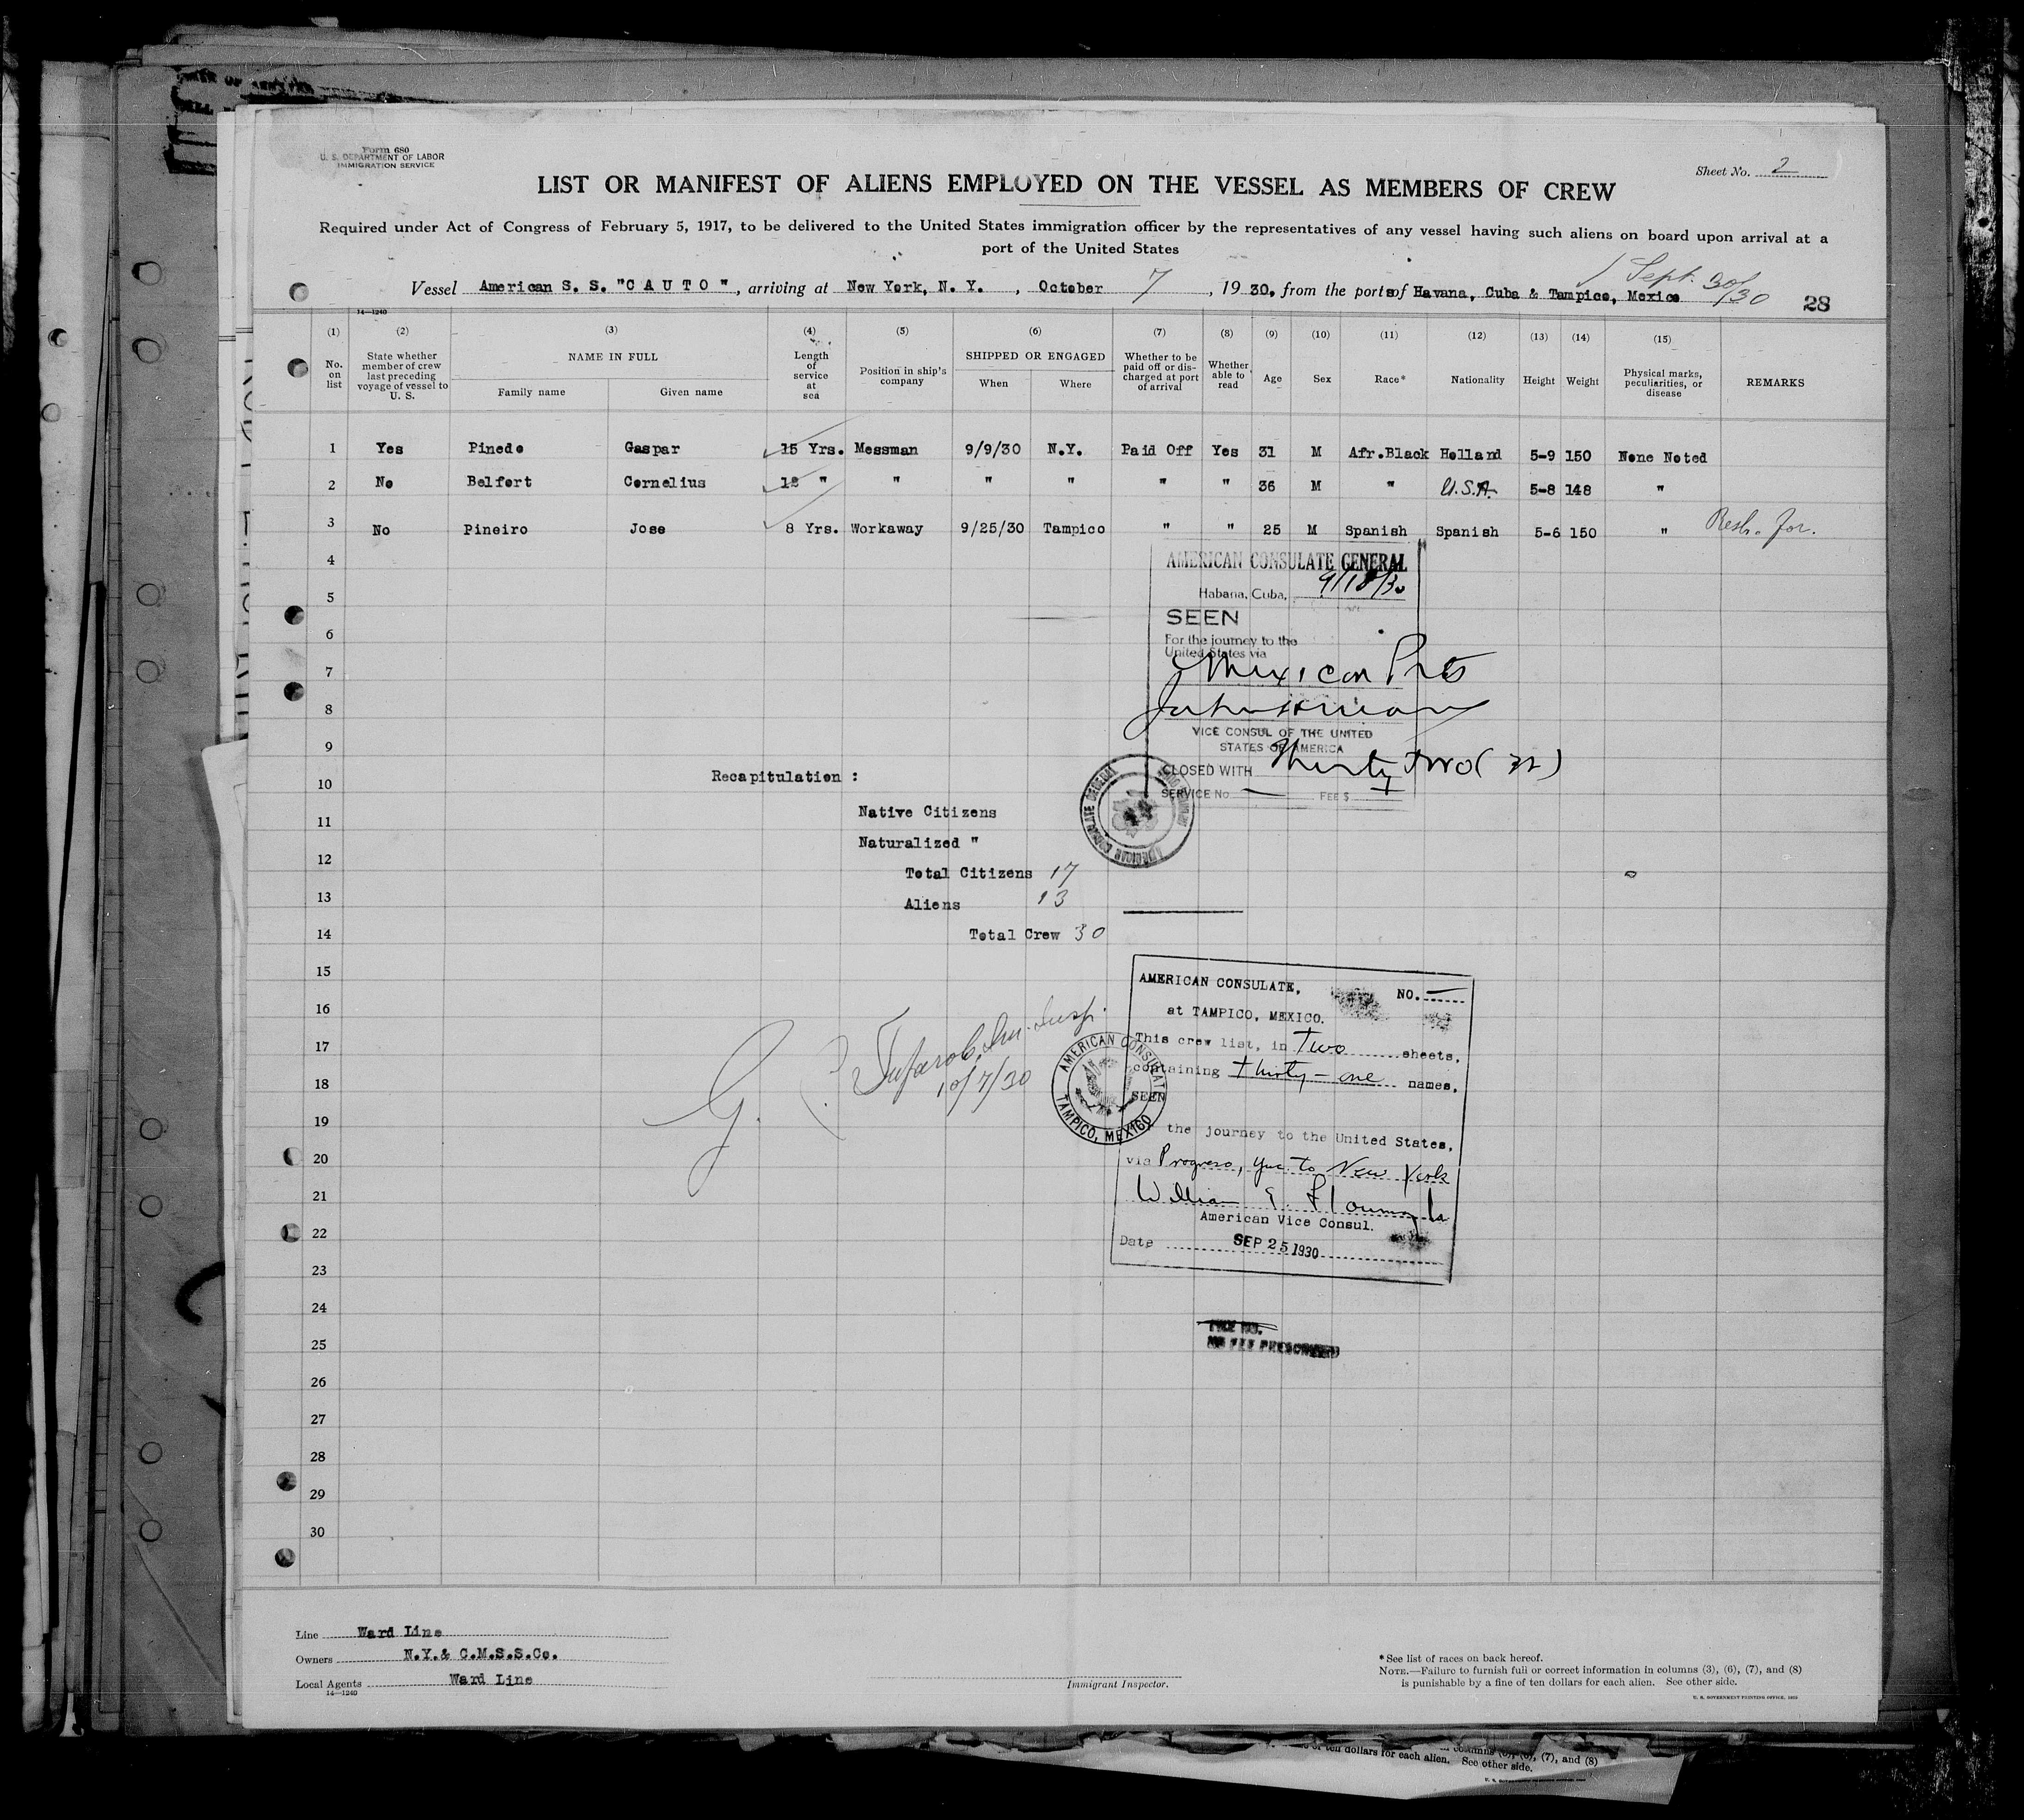 Form 680
U. S. DEPARTMENT OF LABOR
IMMIGRATION SERVICE
Sheet No. 2
LIST OR MANIFEST OF ALIENS EMPLOYED ON THE VESSEL AS MEMBERS OF CREW
Required under Act of Congress of February 5, 1917, to be delivered to the United States immigration officer by the representatives of any vessel having such aliens on board upon arrival at a
port of the United States
Sept. 30/30
Vessel American S. S. "C A U T O", arriving at New York, N. Y., October 7, 1930, from the ports of Havana, Cuba & Tampico, Mexico
28
14—1240
(1) (2) (3) (4) (5) (6) (7) (8) (9) (10) (11) (12) (13) (14) (15)
No. on list
State whether member of crew last preceding voyage of vessel to U. S.
NAME IN FULL
Family name
Given name
Length of service at sea
Position in ship's company
SHIPPED OR ENGAGED
When
Where
Whether to be paid off or discharged at port of arrival
Whether able to read
Age
Sex
Race*
Nationality
Height
Weight
Physical marks, peculiarities, or disease
REMARKS
1 Yes Pinedo Gaspar 15 Yrs. Messman 9/9/30 N.Y. Paid Off Yes 31 M Afr.Black Holland 5-9 150 None Noted
2 No Belfort Cornelius 12 " " " " " " 36 M " U.S.A. 5-8 148 "
3 No Pineiro Jose 8 Yrs. Workaway 9/25/30 Tampico " " 25 M Spanish Spanish 5-6 150 "
4
5
6
7
8
9
10
11
12
13
14
15
16
17
18
19
20
21
22
23
24
25
26
27
28
29
30
AMERICAN CONSULATE GENERAL
Habana, Cuba, 9/18/30
SEEN
For the journey to the
United States via
Mexican Pts
VICE CONSUL OF THE UNITED
STATES OF AMERICA
CLOSED WITH Thirty two (32)
SERVICE No. FEE $
Recapitulation :
Native Citizens
Naturalized "
Total Citizens 17
Aliens 13
Total Crew 30
10/7/30
AMERICAN CONSULATE, NO.
at TAMPICO, MEXICO.
This crew list, in Two sheets,
containing thirty-one names,
SEEN
the journey to the United States,
via Progreso, Yuc. to New York
William E.
American Vice Consul.
Date SEP 25 1930
AMERICAN CONSULATE
TAMPICO, MEXICO
NO FEE PRESCRIBED
Line Ward Line
Owners N.Y.& C.M.S.S.Co.
Local Agents Ward Line
14—1240
Immigrant Inspector.
* See list of races on back hereof.
NOTE.—Failure to furnish full or correct information in columns (3), (6), (7), and (8)
is punishable by a fine of ten dollars for each alien. See other side.
U. S. GOVERNMENT PRINTING OFFICE
of ten dollars for each alien. See other side.
(7), and (8)